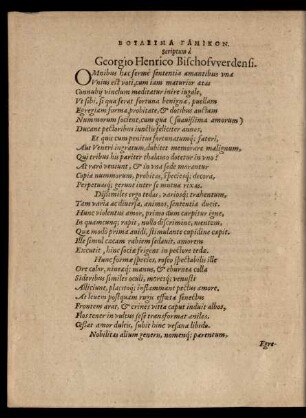 ΒΟΥΛΕΥΜΑ ΓΑΜΙΚΟΝ.
scriptum à
Georgio Henrico Bischofvverdensi.
OMnibus hæc fermè sententia amantibus vna
Vnius est voti, cum iam maturior ætas
Connubij vinclum meditatur inire iugale,
Vt sibi, si qua ferat fortuna benigna, puellam
Egregiam forma, probitate, & dotibus auctam
Nummorum socient, cum qua (suauissima amorum)
Ducant pectoribus iunctis feliciter annos,
Et quis cum penitus fortunatumq; fateri,
Aut Veneri ingratum, dubitet memorare malignum,
Qui tribus his pariter thalamo dotetur in vno?
At rarò veniunt, & in vna sede morantur
Copia nummorum, probitas, speciesq; decora,
Perpetuoq; gerunt inter se mutua rixas.
Dissimiles ergo tedas, variosq; trahentum,
Tam varia ac diuersa, animos, sententia ducit.
Hunc violentus amor, primo dum carpitur igne,
In quamcunq; rapit, nullo discrimine, mentem,
Quæ multi prima auidi, stimulante cupidine capit.
Ille simul cæcam rabiem sedauit, amorem
Excutit, hinc socia frigent in pectore tedæ.
Hunc formæ species, roseo spectabilis ille
Ore color, niueæq; manus, & eburnea colla
Sideribus similes oculi, moresq; venusti
Alliciunt, placitoq; inflammant pectus amore,
At leuem postquam rugis effœta senectus
Frontem arat, & crines vitta caput induit albos,
Flos tener in vultus sese transformat aniles,
Cessat amor dulcis, subit hunc vesana libido.
Nobilitas alium generis, nomenq; parentum,
Egre-